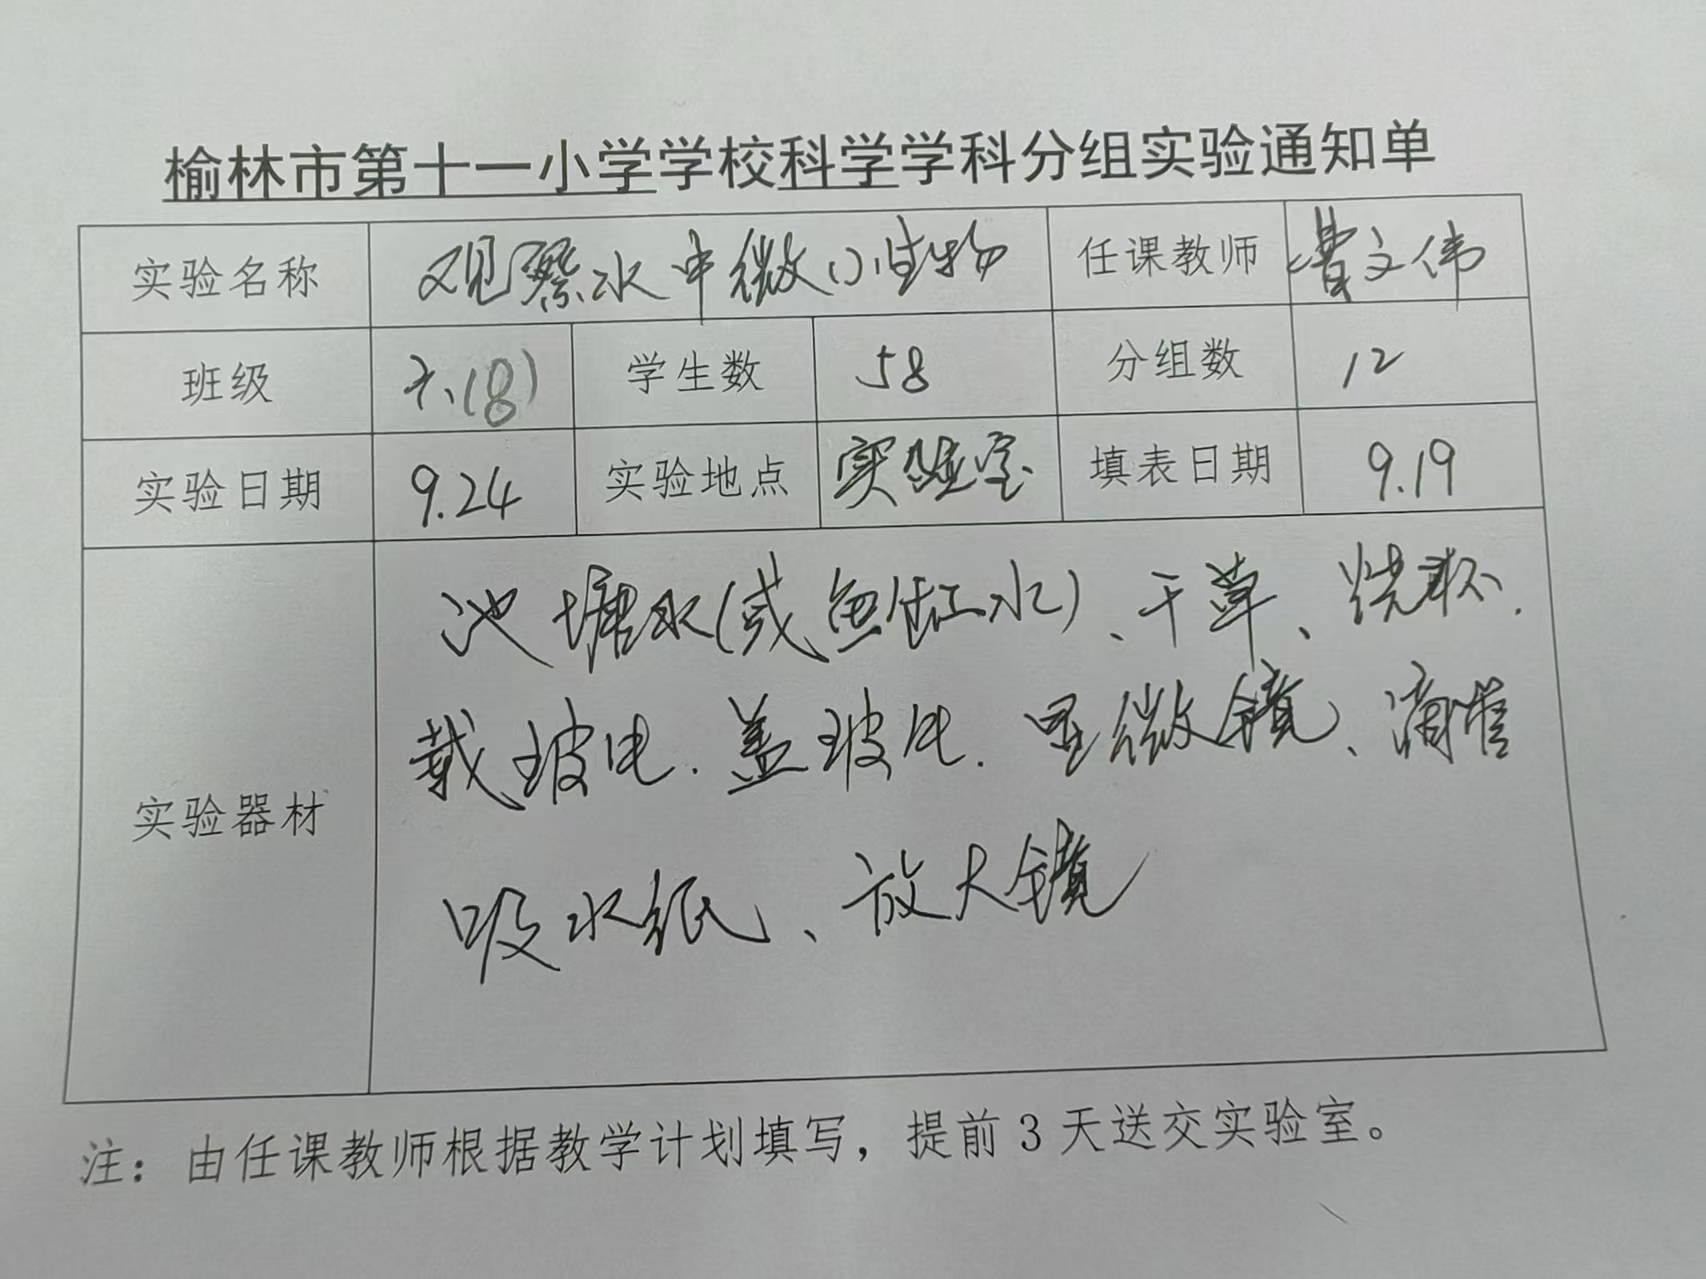 榆林市第十一小学学校科学学科分组实验通知单
实验名称 观察水中微小生物 任课教师 曹文伟
班级 六(8) 学生数 58 分组数 12
实验日期 9.24 实验地点 实验室 填表日期 9.19
池塘水(或鱼缸水)、干草、烧杯.
载玻片.盖玻片.显微镜、滴管
实验器材
吸水纸、放大镜
注：由任课教师根据教学计划填写，提前3天送交实验室。